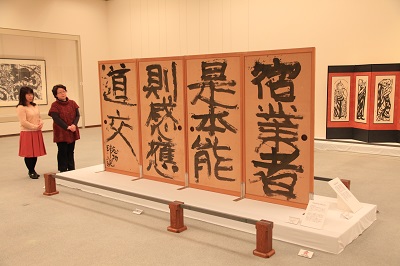 宿業者
是本能
則感應
道交